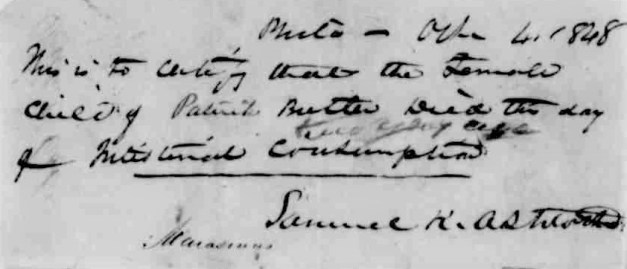 4 1848
This is to certify that the Female
Child of Patrick Butler Died this day
two days age
of Intestinal Consumption
Samuel K. Ashton
Marasmus